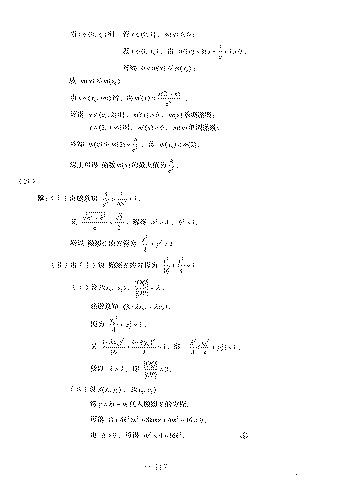 当 x∈(0, x₀] 时, 若 x∈(0, 1], m(x)≤0;
可知 0<m(x)≤m(x₀);
故 m(x)≤m(x₀).
可得 x∈(x₀, 2)时, m′(x)>0, m(x)单调递增;
x∈(2, +∞)时, m′(x)<0, m(x)单调递减;
可知 m(x)≤m(2)=4/e², 且 m(x₀)<m(2).
综上可得 函数m(x)的最大值为 4/e².
(21)
解:(Ⅰ)由题意知 3/a²+1/4b²=1,
又 √(a²-b²)/a=√3/2, 解得 a²=4, b²=1,
所以 椭圆C的方程为 x²/4+y²=1.
(Ⅱ)由(Ⅰ)知 椭圆E的方程为 x²/16+y²/4=1.
(i)设P(x₀, y₀), |OQ|/|OP|=λ,
由题意知 Q(-λx₀, -λy₀).
因为 x₀²/4+y₀²=1,
又 (-λx₀)²/16+(-λy₀)²/4=1, 即 λ²/4(x₀²/4+y₀²)=1,
所以 λ=2, 即 |OQ|/|OP|=2.
(ii)设A(x₁, y₁), B(x₂, y₂)
将 y=kx+m代入椭圆E的方程,
可得 (1+4k²)x²+8kmx+4m²-16=0,
由 Δ>0, 可得 m²<4+16k². ①